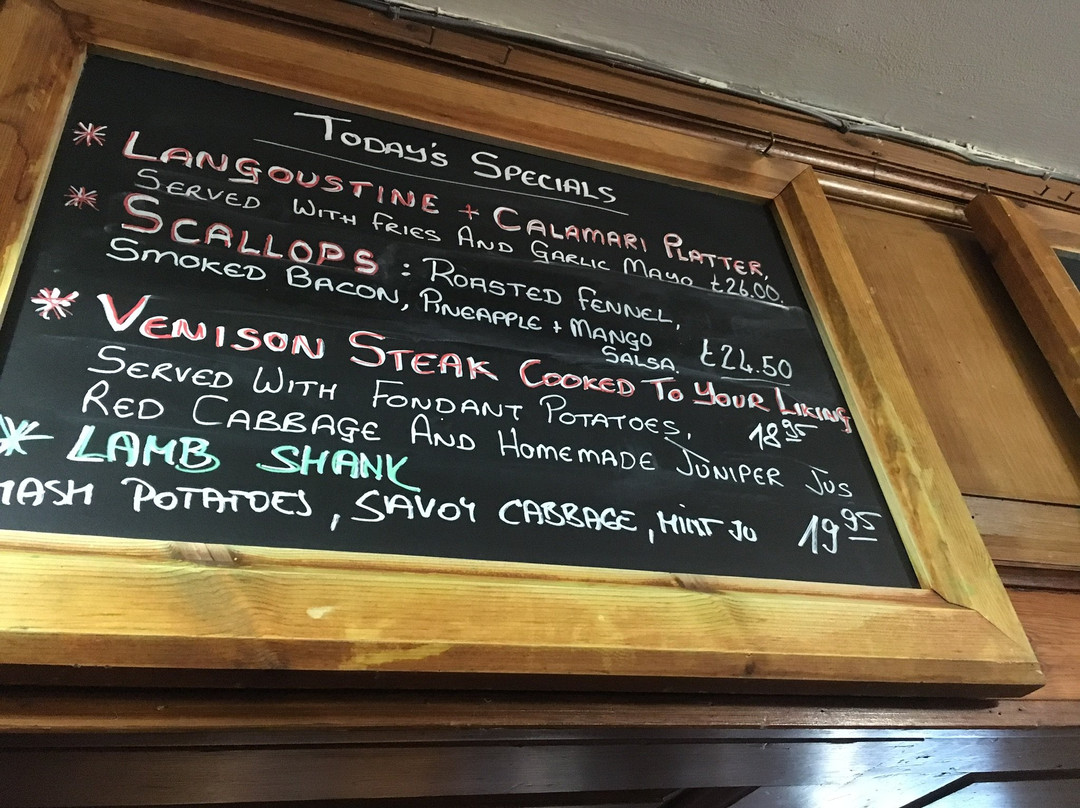 TODAY'S SPECIALS
* LANGOUSTINE + CALAMARI PLATTER,
SERVED WITH FRIES AND GARLIC MAYO £26.00.
* SCALLOPS : ROASTED FENNEL,
SMOKED BACON, PINEAPPLE + MANGO
SALSA. £24.50
* VENISON STEAK COOKED TO YOUR LIKING
SERVED WITH FONDANT POTATOES, 18 95
RED CABBAGE AND HOMEMADE JUNIPER JUS
* LAMB SHANK
MASH POTATOES, SAVOY CABBAGE, MINT JU 19 95